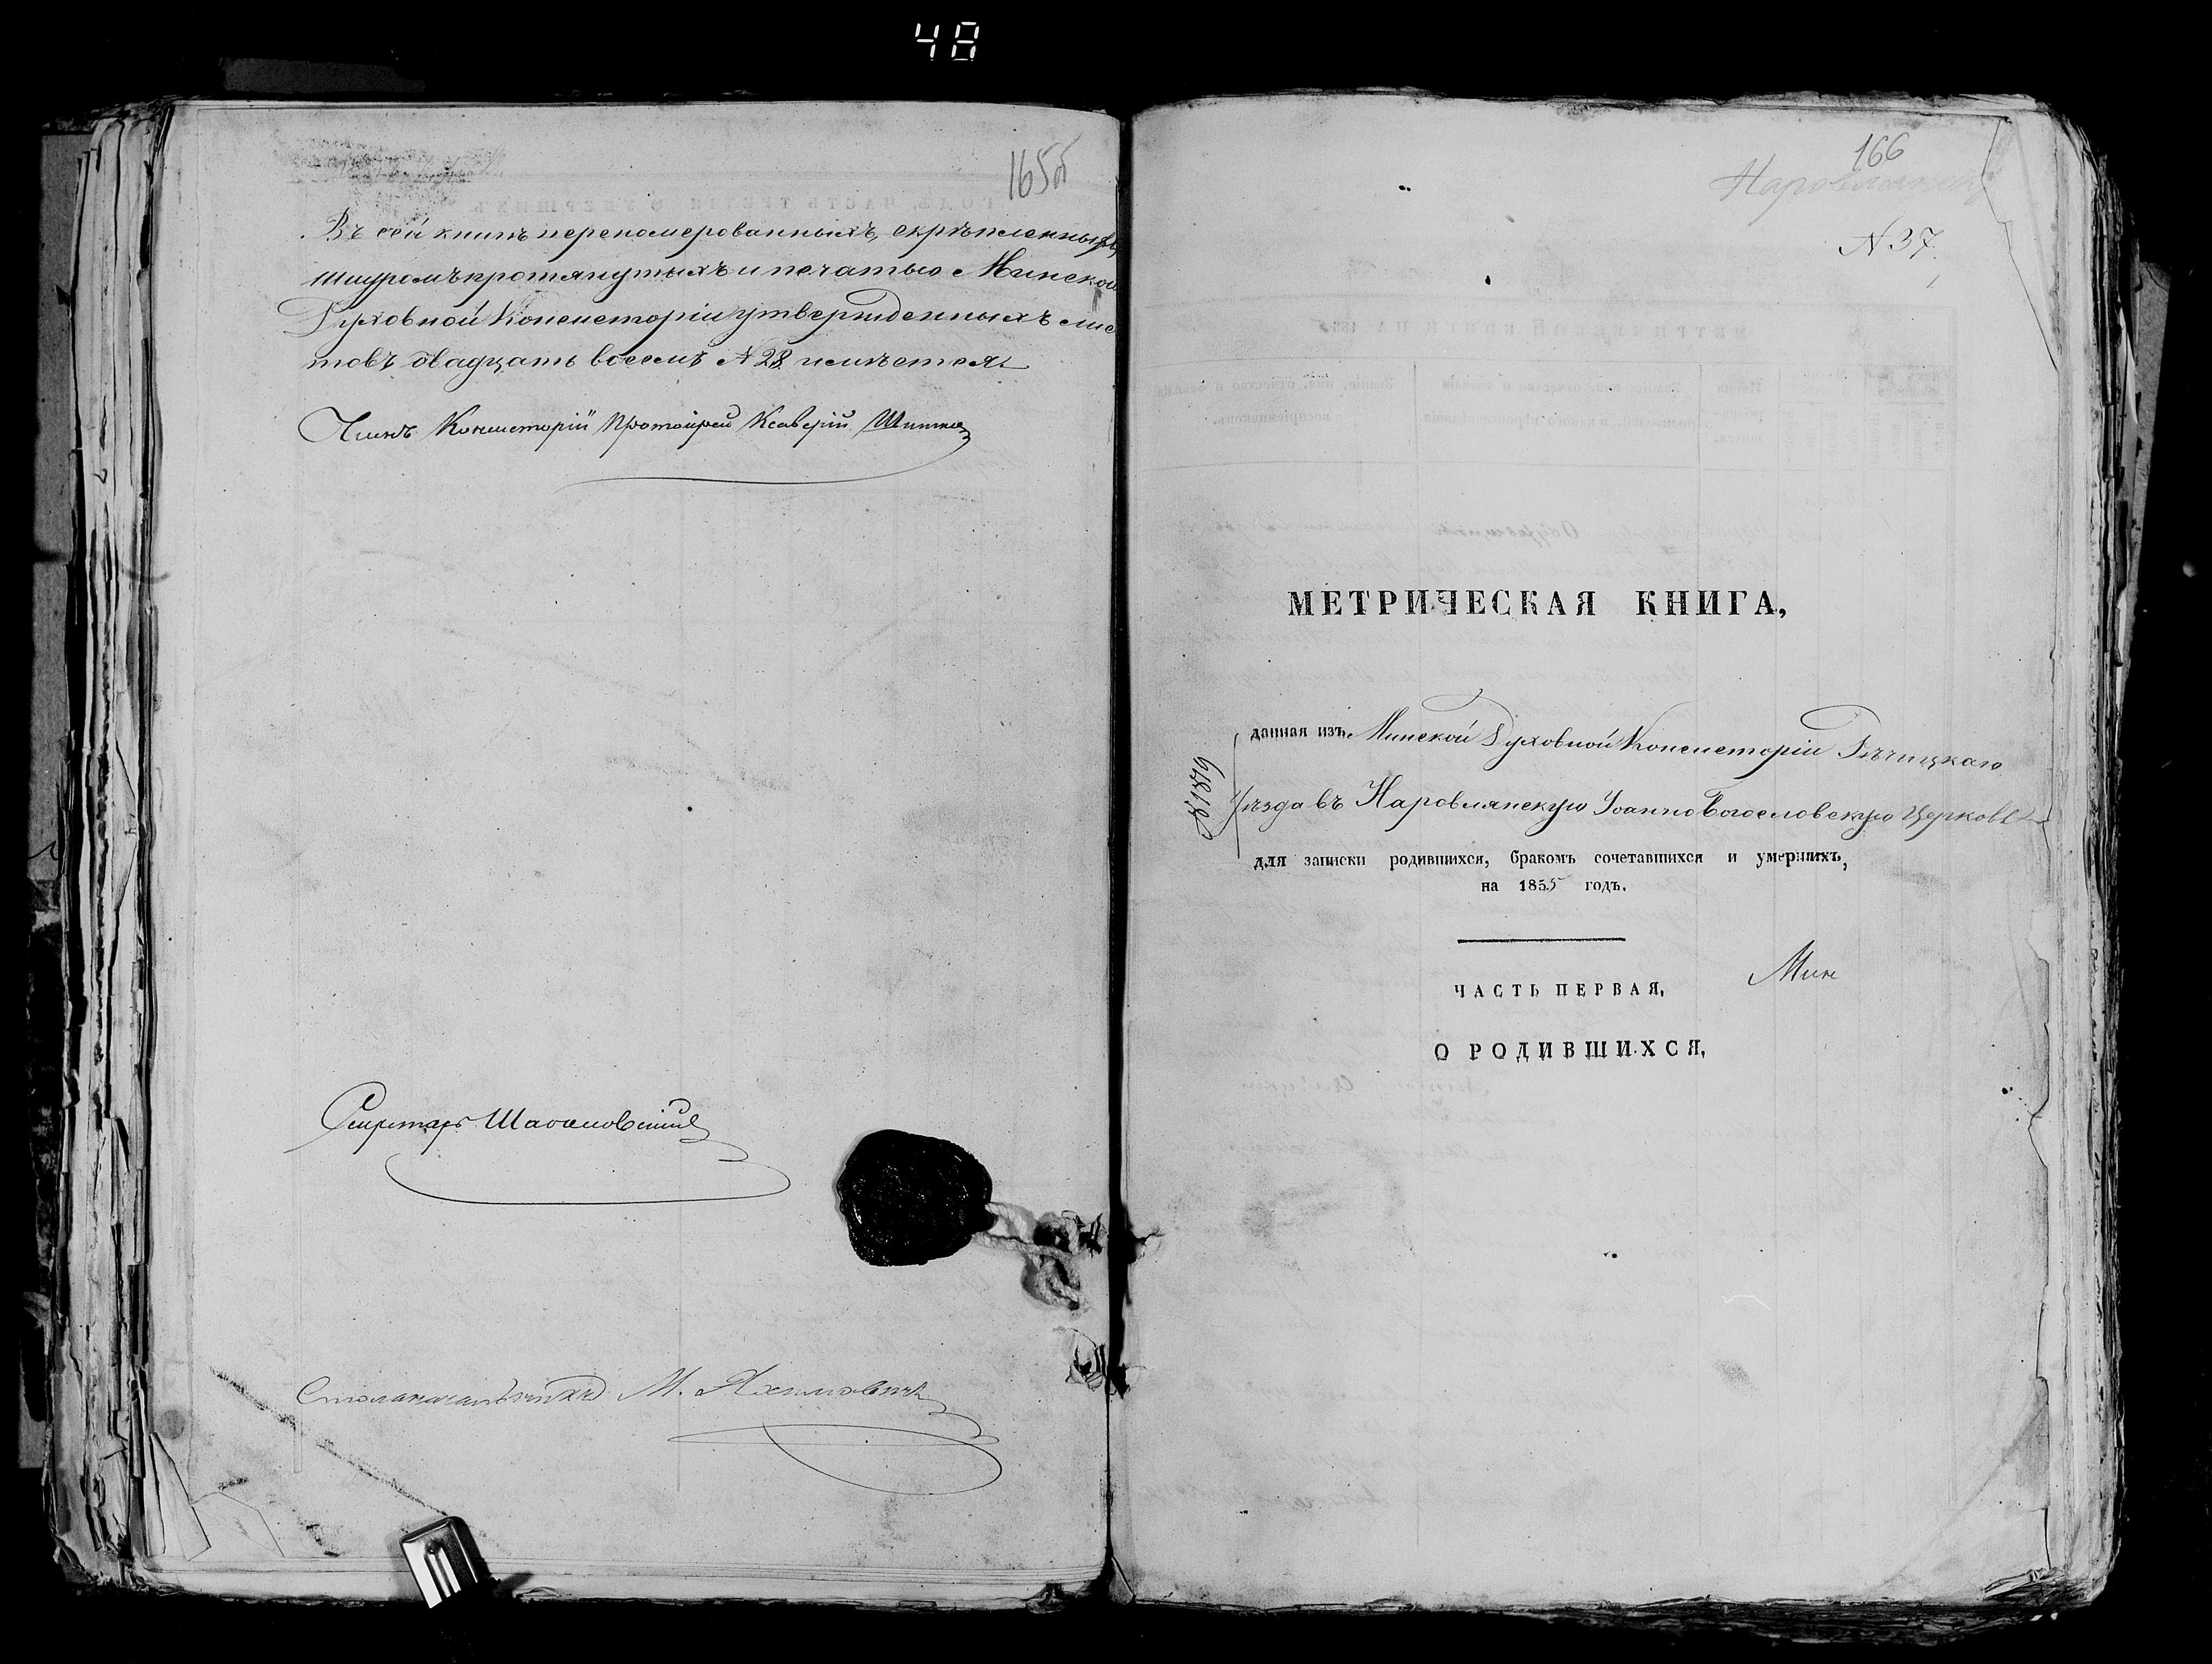 48
165об
Въ сей книгѣ перенумерованныхъ, скрѣпленныхъ,
шнуромъ протянутыхъ и печатью Минской
Духовной Консисторіи утвержденныхъ лис
товъ двадцать восемь № 28 имѣется
Членъ Консисторіи Протоіерей Ксаверій
Секретарь
Столоначальникъ М.
166
Наровлянск
№ 37.
МЕТРИЧЕСКАЯ КНИГА,
данная изъ Минской Духовной Консисторіи Рѣчицкаго
Уѣзда въ Наровлянскую Іоанно Богословскую Церковь
для записки родившихся, бракомъ сочетавшихся и умершихъ,
на 1855 годъ.
Мин
ЧАСТЬ ПЕРВАЯ,
О РОДИВШИХСЯ,